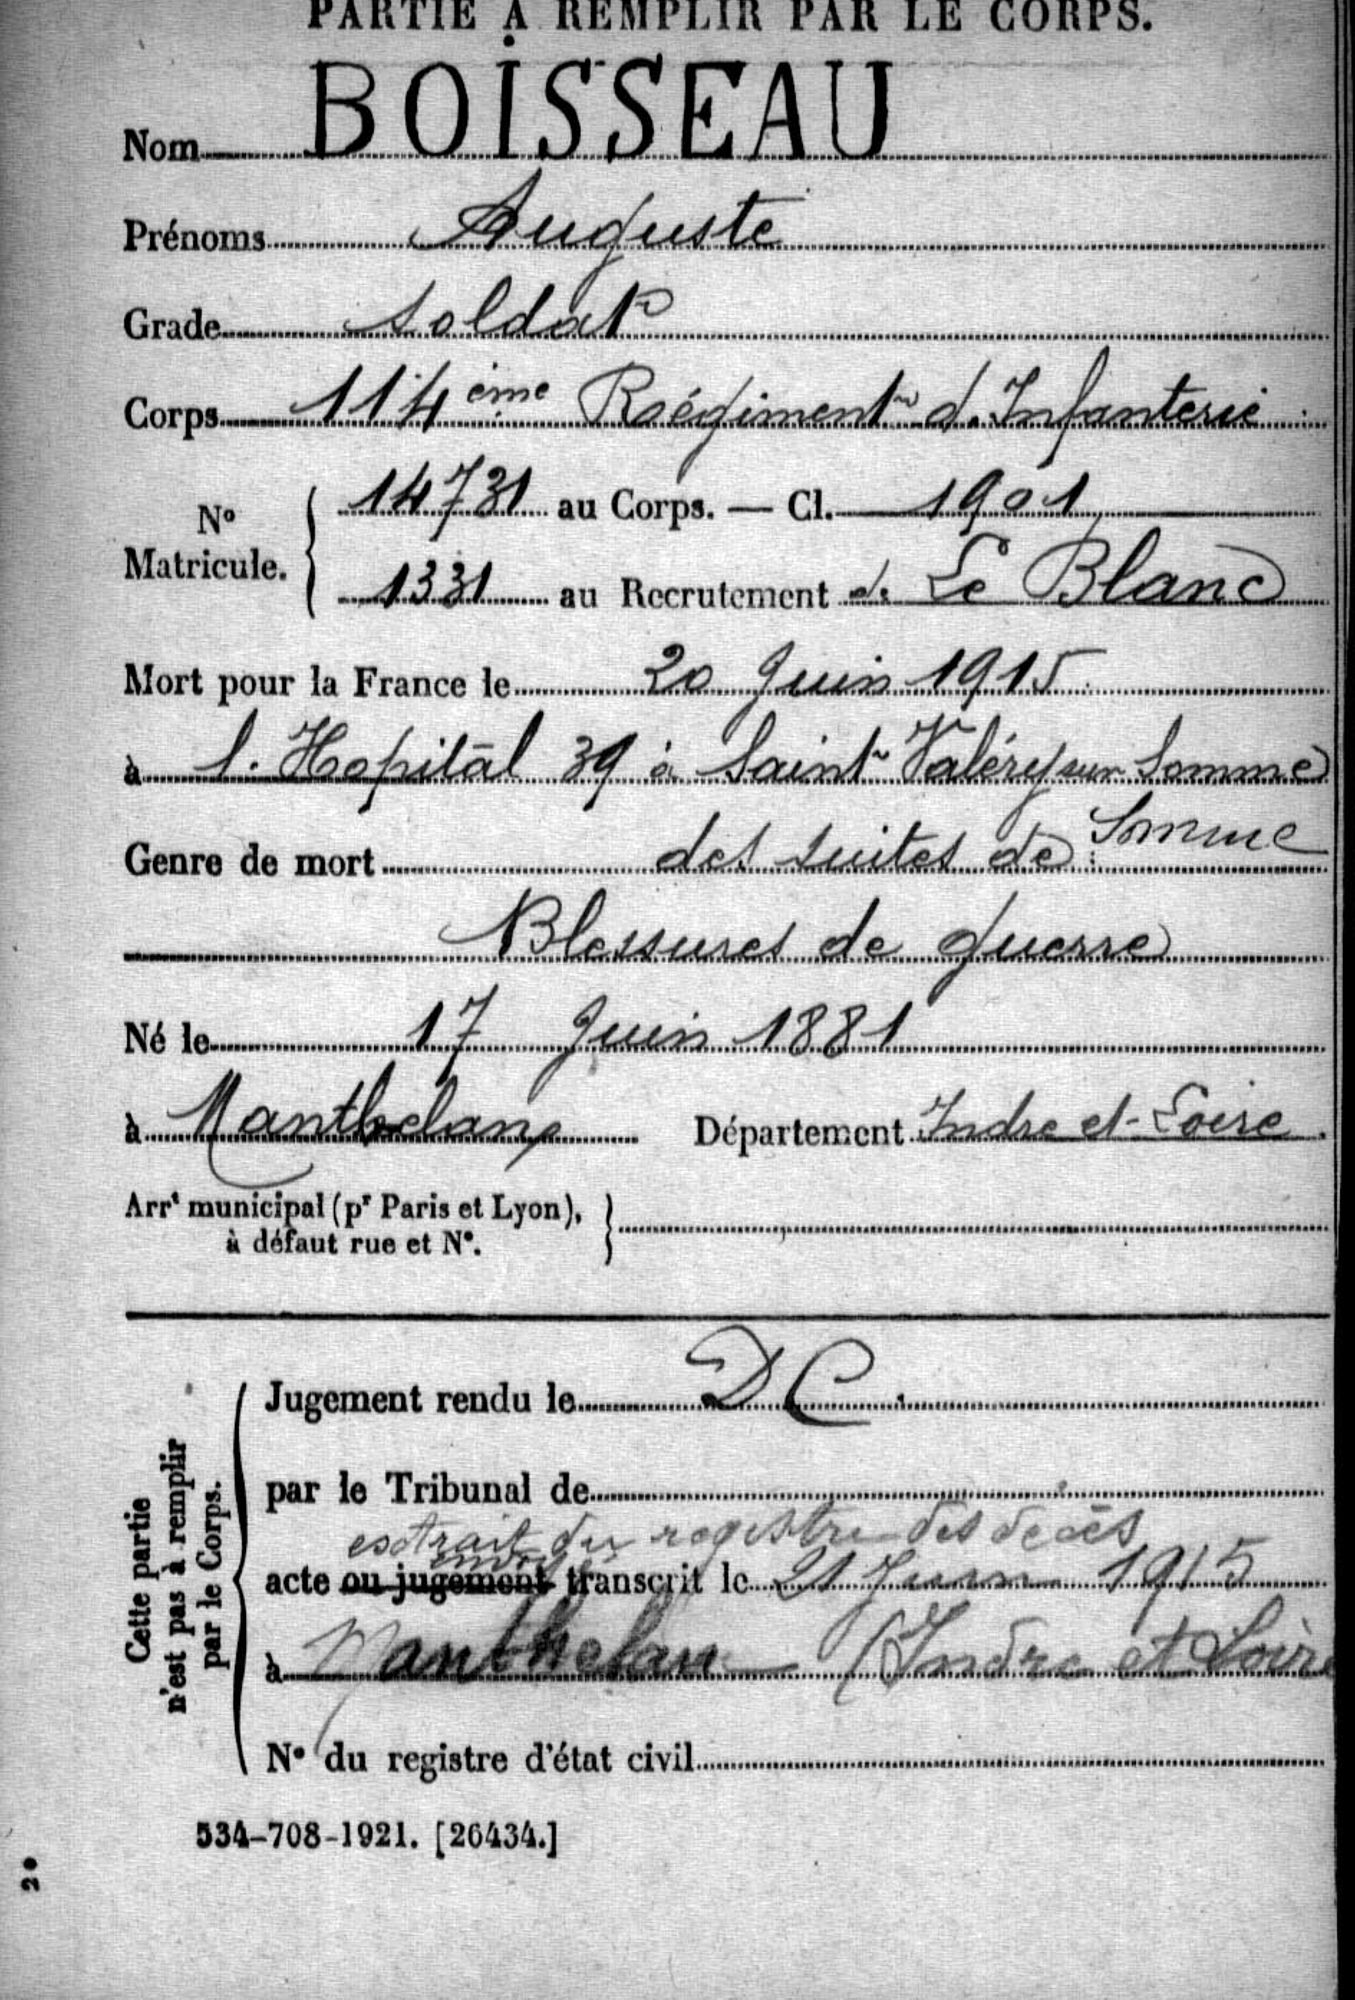 PARTIE À REMPLIR PAR LE CORPS.
Nom BOISSEAU
Prénoms Auguste
Grade soldat
Corps 114ème Régiment d. Infanterie
N° Matricule. { 14731 au Corps. — Cl. 1901
1331 au Recrutement d. Le Blanc
Mort pour la France le 20 Juin 1915
à l. Hopital 39 à Saint Valéry sur Somme
Somme
Genre de mort des suites de
Blessures de guerre
Né le 17 Juin 1881
à Manthelan Département Indre et-Loire
Arrt municipal (pr Paris et Lyon),
à défaut rue et N°.
Cette partie
n'est pas à remplir
par le Corps.
Jugement rendu le DC.
par le Tribunal de
extrait du registre des décès
envoyé
acte ou jugement transcrit le 21 Juin 1915
à Manthelan (Indre et Loire
N° du registre d'état civil
534-708-1921. [26434.]
2°